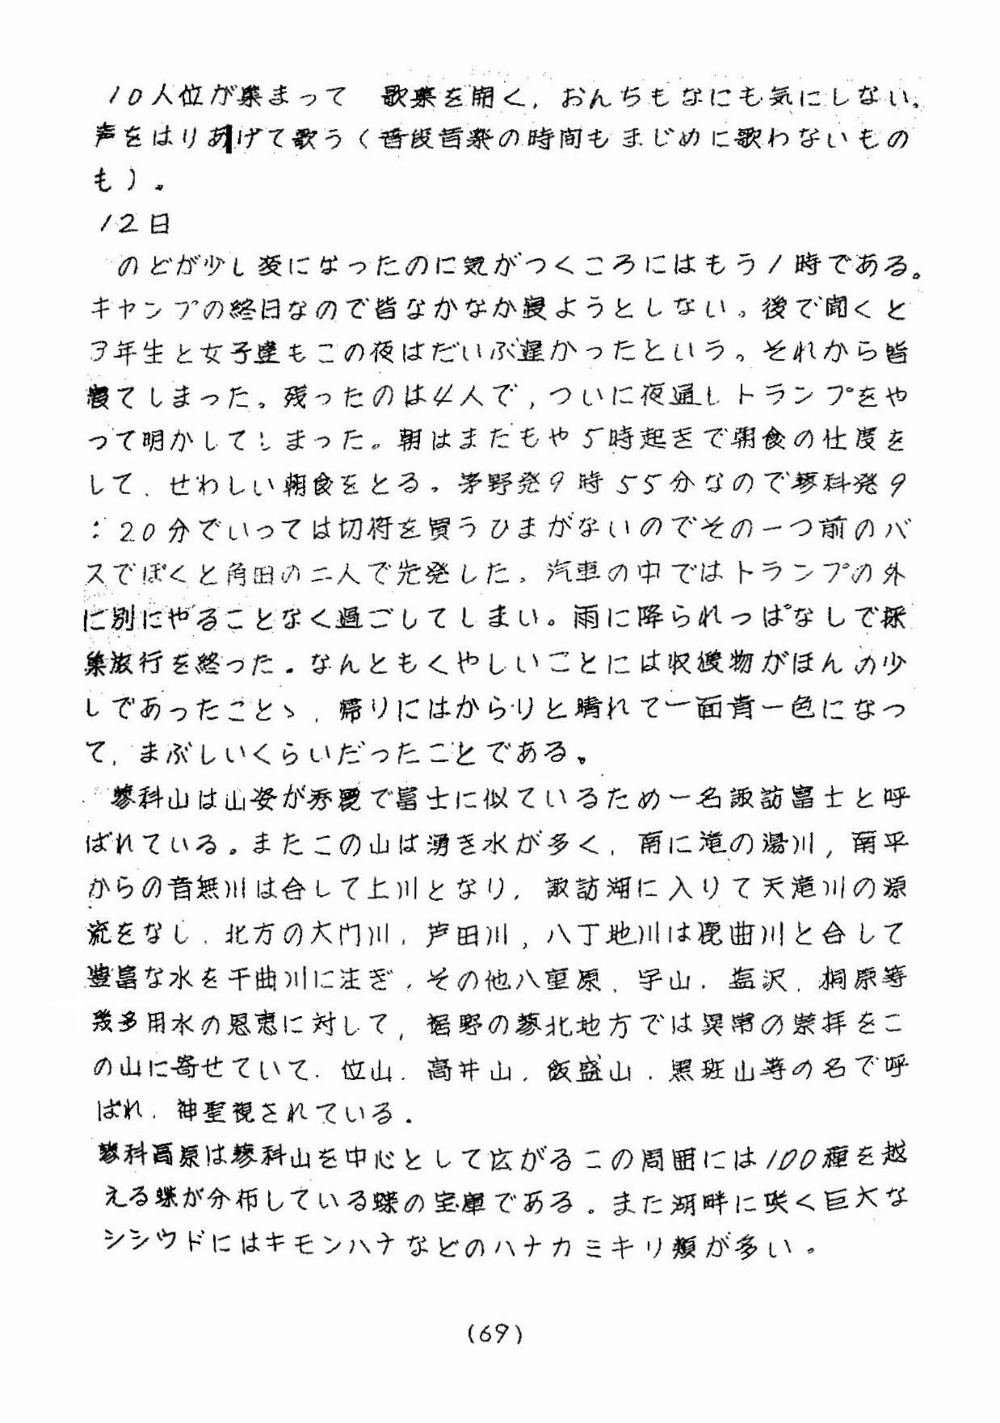 10人位が集まって 歌集を開く，おんちもなにも気にしない。
声をはりあげて歌う（普段音楽の時間もまじめに歌わないもの
も）。
12日
のどが少し変になったのに気がつくころにはもう1時である。
キャンプの終日なので皆なかなか寝ようとしない。後で聞くと
3年生と女子達もこの夜はだいぶ遅かったという。それから皆
寝てしまった。残ったのは4人で，ついに夜通しトランプをや
って明かしてしまった。朝はまたもや5時起きで朝食の仕度を
して，せわしい朝食をとる。茅野発9時55分なので蓼科発9
：20分でいっては切符を買うひまがないのでその一つ前のバ
スでぼくと角田の二人で先発した。汽車の中ではトランプの外
に別にやることなく過ごしてしまい。雨に降られっぱなしで採
集旅行を終った。なんともくやしいことには収穫物がほんの少
しであったことゝ，帰りにはからりと晴れて一面青一色になっ
て，まぶしいくらいだったことである。
蓼科山は山姿が秀麗で富士に似ているため一名諏訪富士と呼
ばれている。またこの山は湧き水が多く，南に滝の湯川，南平
からの音無川は合して上川となり，諏訪湖に入りて天竜川の源
流をなし，北方の大門川，芦田川，八丁地川は鹿曲川と合して
豊富な水を千曲川に注ぎ，その他八重原，宇山，塩沢，桐原等
幾多用水の恩恵に対して，裾野の蓼北地方では異常の崇拝をこ
の山に寄せていて，位山，高井山，飯盛山，黒斑山等の名で呼
ばれ，神聖視されている．
蓼科高原は蓼科山を中心として広がるこの周囲には100種を越
える蝶が分布している蝶の宝庫である。また湖畔に咲く巨大な
シシウドにはキモンハナなどのハナカミキリ類が多い。
(69)